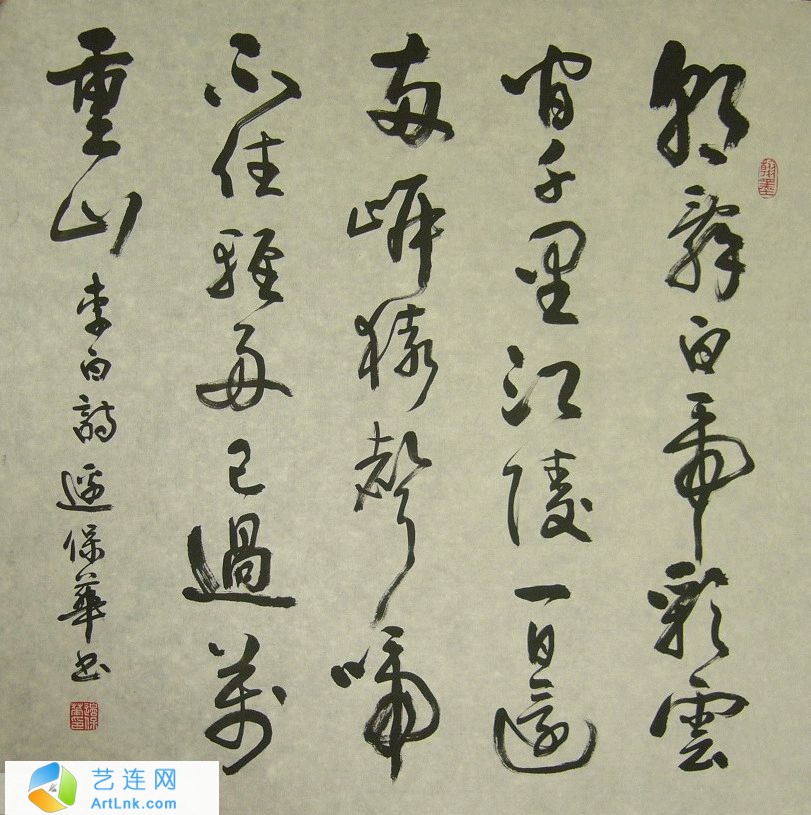 朝辭白帝彩雲
間千里江陵一日還
兩岸猿聲啼
不住輕舟已過萬
重山 李白詩 保華书
翰墨
艺连网
ArtLnk.com